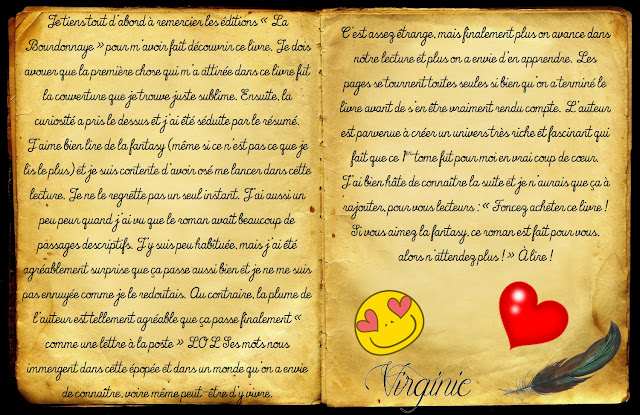 Je tiens tout d'abord à remercier les éditions « La
Bourdonnaye » pour m'avoir fait découvrir ce livre. Je dois
avouer que la première chose qui m'a attirée dans ce livre fut
la couverture que je trouve juste sublime. Ensuite, la
curiosité a pris le dessus et j'ai été séduite par le résumé.
J'aime bien lire de la fantasy (même si ce n'est pas ce que je
lis le plus) et je suis contente d'avoir osé me lancer dans cette
lecture. Je ne le regrette pas un seul instant. J'ai aussi un
peu peur quand j'ai vu que le roman avait beaucoup de
passages descriptifs. J'y suis peu habituée, mais j'ai été
agréablement surprise que ça passe aussi bien et je ne me suis
pas ennuyée comme je le redoutais. Au contraire, la plume de
l'auteur est tellement agréable que ça passe finalement «
comme une lettre à la poste » LOL Ses mots nous
immergent dans cette épopée et dans un monde qu'on a envie
de connaître, voire même peut-être d'y vivre.
C'est assez étrange, mais finalement plus on avance dans
nôtre lecture et plus on a envie d'en apprendre. Les
pages se tournent toutes seules si bien qu'on a terminé le
livre avant de s'en être vraiment rendu compte. L'auteur
est parvenue à créer un univers très riche et fascinant qui
fait que ce 1er tome fût pour moi en vrai coup de cœur.
J'ai bien hâte de connaître la suite et je n'aurais que ça à
rajouter, pour vous lecteurs : « Foncez acheter ce livre !
Si vous aimez la fantasy, ce roman est fait pour vous,
alors n'attendez plus ! » À lire !
Virginie